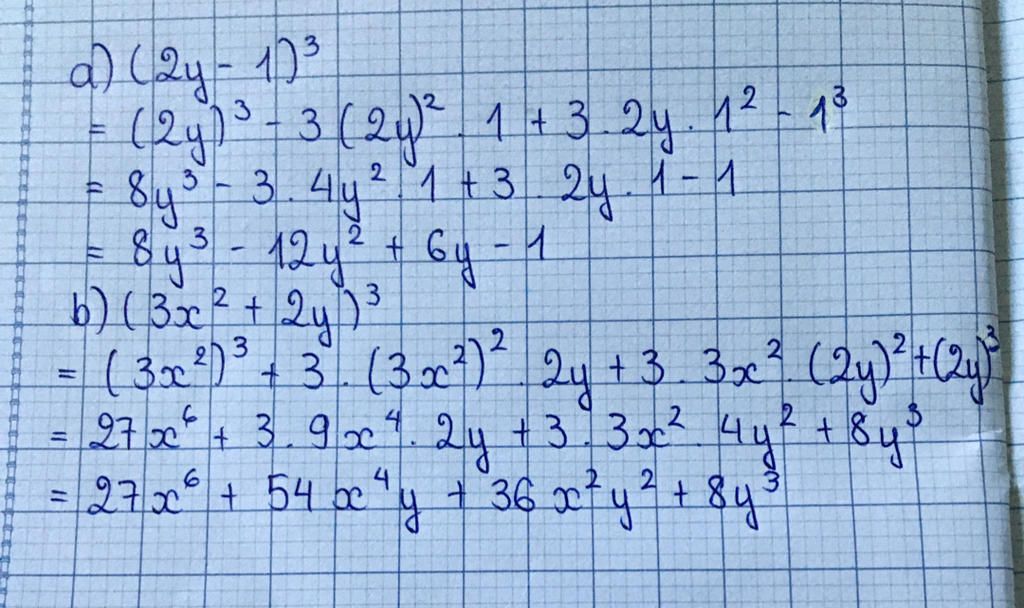 a) (2y - 1)³
= (2y)³ - 3 (2y)² . 1 + 3 . 2y . 1² - 1³
= 8y³ - 3 . 4y² . 1 + 3 . 2y . 1 - 1
= 8y³ - 12y² + 6y - 1
b) (3x² + 2y)³
= (3x²)³ + 3 . (3x²)² . 2y + 3 . 3x² . (2y)² + (2y)³
= 27x⁶ + 3 . 9x⁴ . 2y + 3 . 3x² . 4y² + 8y³
= 27x⁶ + 54x⁴y + 36x²y² + 8y³